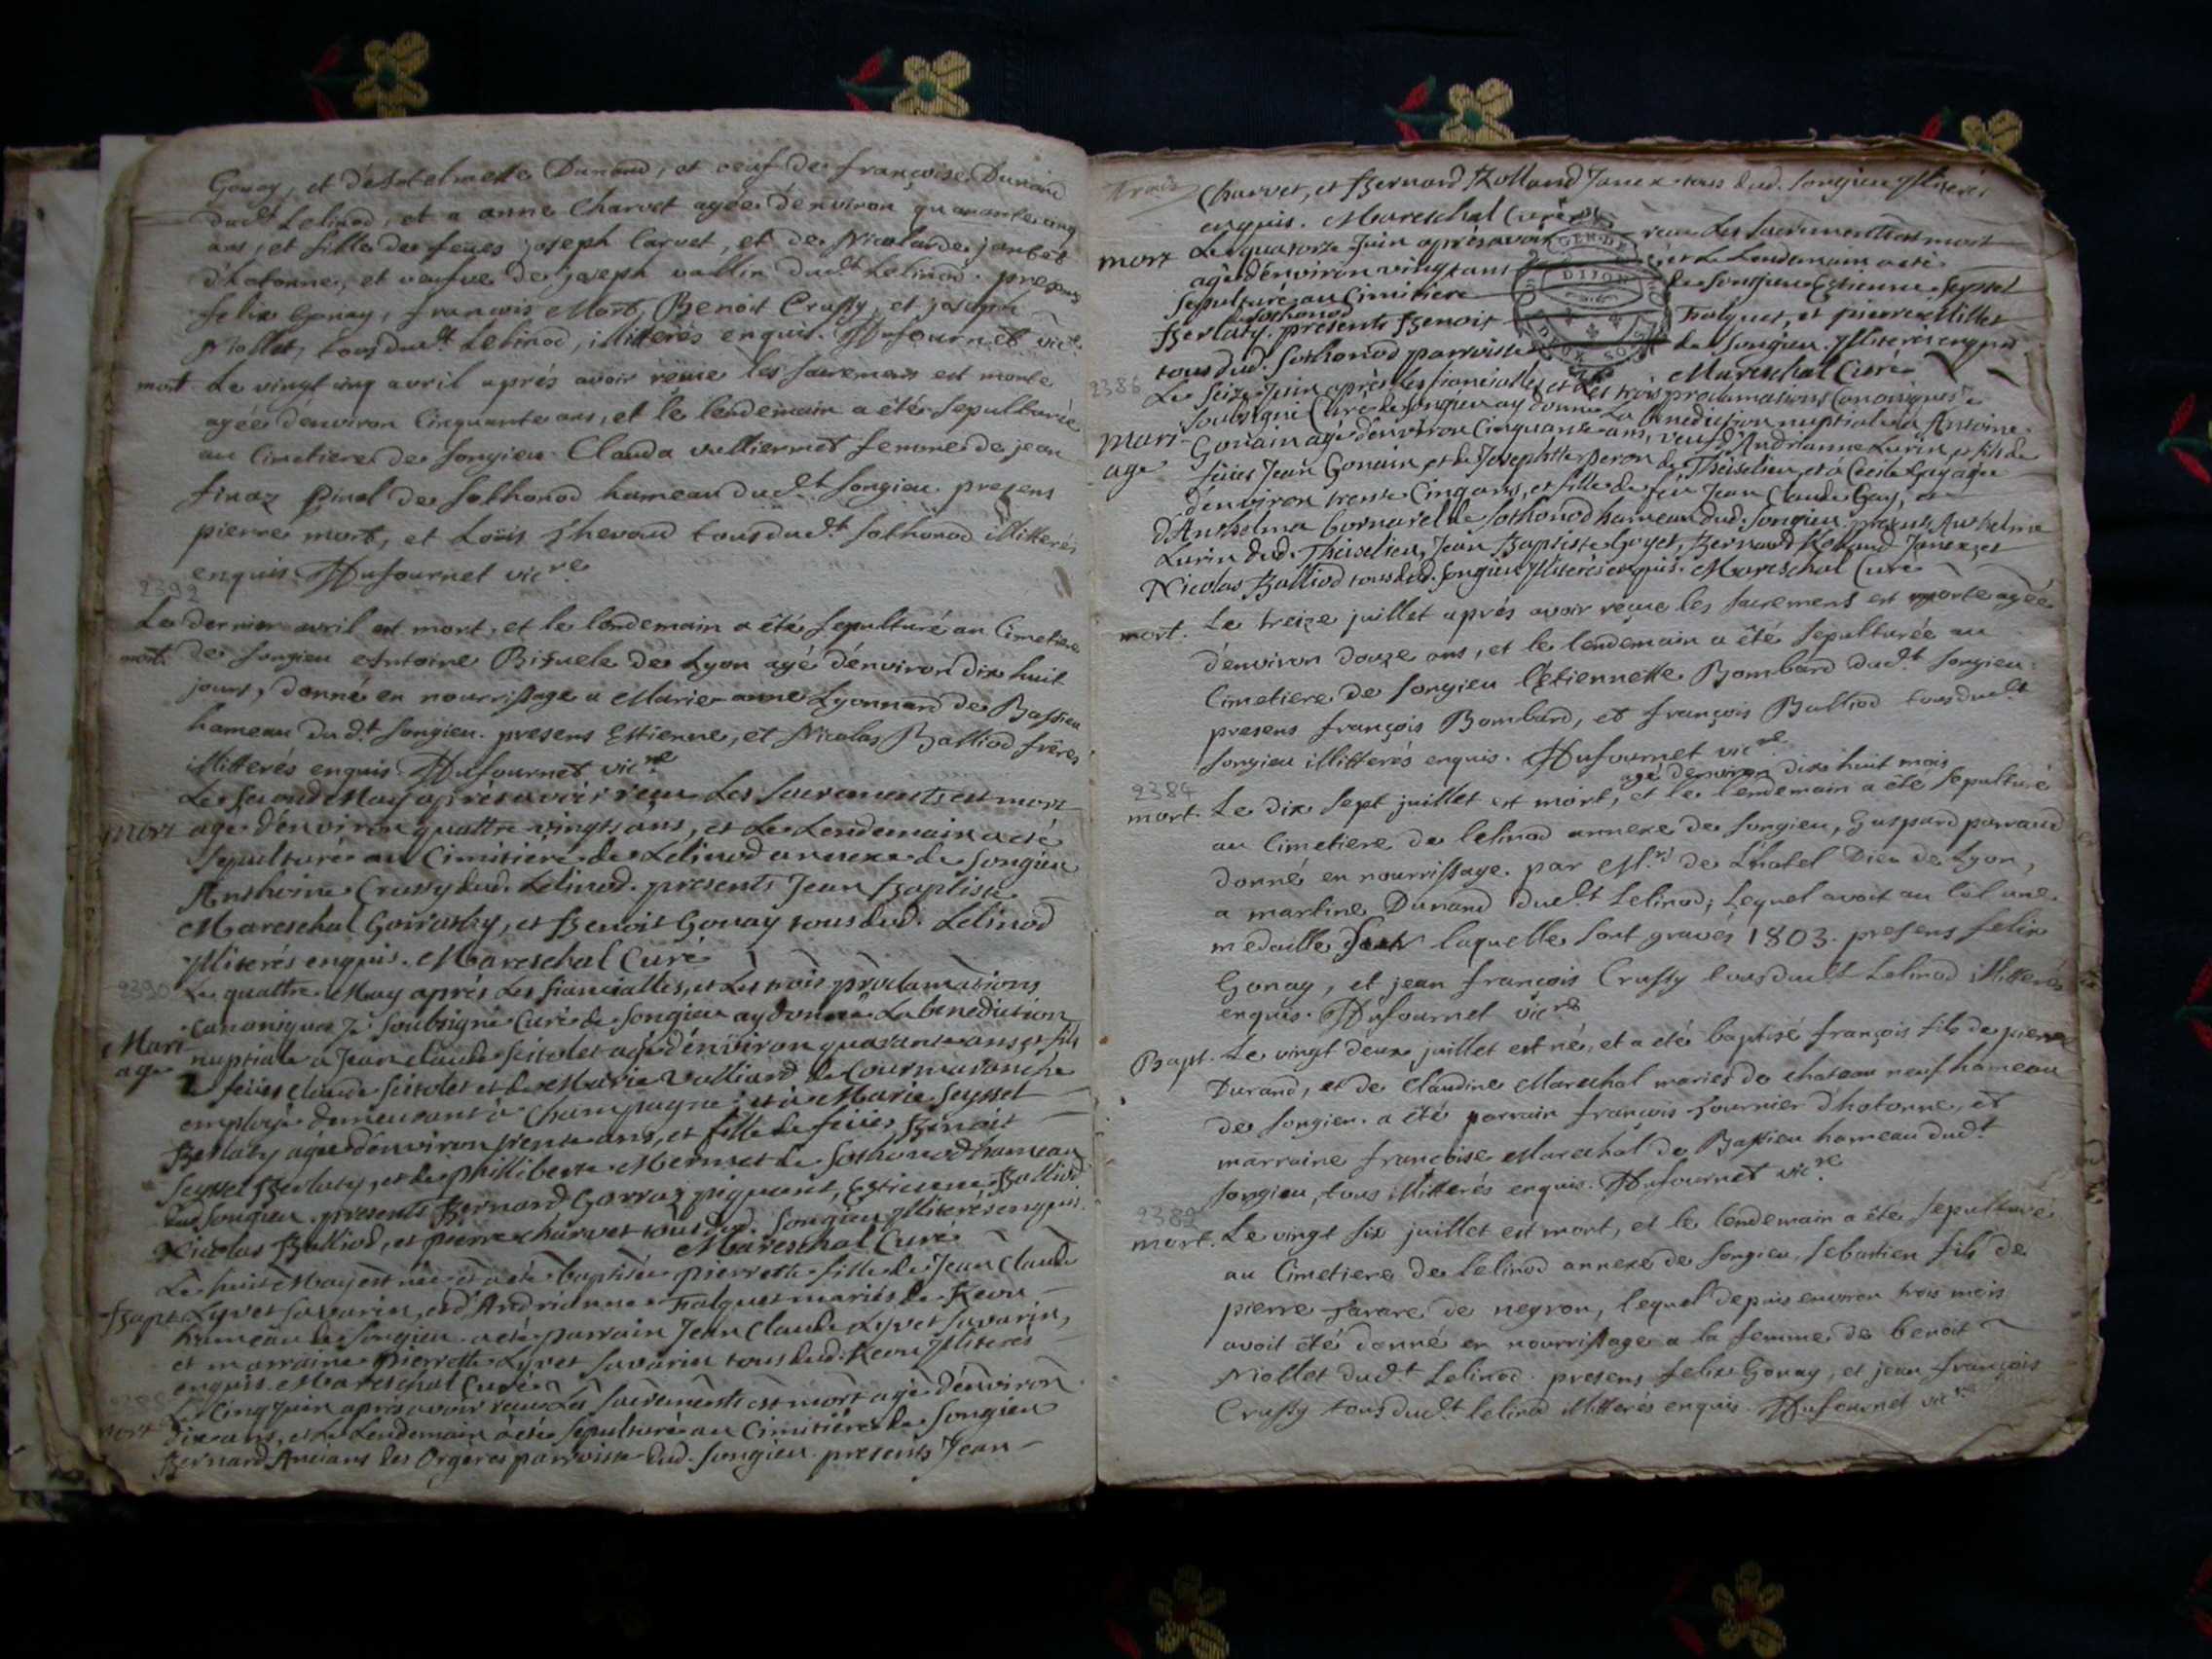 Gonay, et d'Antelmette Dunand, et veuf de françoise Dunand
dud.t Lelinod, et a anne Charvet agée d'environ quarante cinq
ans, et fille des feües joseph Carvet, et de Nicolarde jantet
d'hotonne, et veufve de joseph vallin dud.t Lelinod. presens
felix Gonay, francois Mort, Benoit Crussy, et joseph
Niollet, tous dud.t Lelinod, illitterés enquis. Dufournet vic.re
mort Le vingt cinq avril aprés avoir reüue les sacremens est morte
agée d'environ Cinquante ans, et le lendemain a êté sepulturée
au Cimetiere de songieu Clauda vulliermet femme de jean
finaz pinel de sothonod hameau dud.t songieu. presens
pierre mort, et Loüis thevand tous dud.t sothonod illitterés
enquis. Dufournet vic.re
2392
Le dernier avril est mort, et le lendemain a êté sepulturé au Cimetiere
mort. de songieu Antoine Bizuele de Lyon agé d'environ dix huit
jours, donné en nourrissage a Marie anne Lyonnard de Bassieu
hameau dud.t songieu. presens Estienne, et Nicolas Balliod fréres
illitterés enquis Dufournet vic.re
Le second May aprés avoir reçu Les sacrements est mort
mort agé d'environ quattre vingts ans, et Le Lendemain a eté
sepulturé au Cimitiére de Lelinod annexe de songieu
Anthoine Crussy dud. Lelinod. presents Jean Baptiste
Mareschal Goirasby, et Benoit Gonay tous dud. Lelinod
Illiterés enquis. Mareschal Curé
2390 Le quattre May aprés Les fiancialles, et Les trois proclamations
Canoniques Je soubsigné Curé de songieu ay donné La benediction
Mariage nuptiale a Jean claude seitolet agé d'environ quarante ans et fils
de feües Claude seitolet et de Marie Valliard de Cormaranche
employé demeurant à Champagne; et à Marie Seyssel
Berlaty agée d'environ trente ans, et fille de feües Benoit
Seyssel Berlaty, et de Philliberte Mermet de sothonod hameau
dud. songieu. presents Bernard Garraz piquant, Estienne Balliod
Nicolas Balliod, et pierre charvet tous dud. Songieu Illiterés enquis.
Mareschal Curé
Le huit May est née et a eté baptisée pierrette fille de Jean Claude
Bapt Lyvet savarin, et d'Andrianne Falquet mariés de Revu
hameau de songieu. a eté parrain Jean Claude Lyvet savarin,
et marraine pierrette Lyvet savarin tous dud. Revu Illiterés
enquis. Mareschal Curé
Le Cinq Juin aprés avoir reçu Les sacrements est mort agé d'environ
mort dix ans, et Le Lendemain a eté sepulturé au Cimitiére de songieu
Bernard Ancians des Orgéres parroisse dud. songieu. presents Jean
trois Charvet, et Bernard Rolland Janex tous dud. songieu Illiterés
enquis. Mareschal Curé
mort Le quatorze Juin aprés avoir reçu Les sacrements est mort
agé d'environ vingt ans et Le Lendemain a eté
sepulturé au Cimitiere de songieu Estienne Seyssel
Berlaty. de sothonod presents Benoit Falquet, et pierre Millet
tous dud. sothonod parroisse de songieu. Illiterés enquis
Mareschal Curé
DIJON
DEUX SOLS
2386 Le seize Juin aprés Les fiancialles, et Les trois proclamations Canoniques Je
soubsigné Curé de songieu ay donné La benediction nuptiale a Antoine
Mariage Gonain agé d'environ Cinquante ans, veuf d'Andrianne Lurin, et fils de
feües Jean Gonain, et de Josephtte peron de Thezilieu, et à Cecile Gay agée
d'environ trente Cinq ans, et fille de feu Jean Claude Gay, et
d'Anthelma bornarel de sothonod hameau dud. songieu. presents Anthelme
Lurin dud. Thezilieu, Jean Baptiste Goyet, Bernard Rolland Janex, et
Nicolas Balliod tous dud. songieu Illiterés enquis. Mareschal Curé
mort. Le treize juillet aprés avoir reçue les sacremens est morte agée
d'environ douze ans, et le lendemain a êté sepulturée au
Cimetiere de songieu l'Etiennette Bombard dud.t songieu.
presens françois Bombard, et françois Balliod tous dud.t
songieu illitterés enquis. Dufournet vic.re
2384
agé d'environ dix huit mois
mort. Le dix sept juillet est mort, et le lendemain a êté sepulturé
au Cimetiere de lelinod annexe de songieu, Gaspard parraud
donné en nourrissage par M.rs de L'hotel Dieu de Lyon,
a martine Dunand dud.t Lelinod; Lequel avoit au col une
medaille sur laquelle sont gravés 1803. presens felix
Gonay, et jean françois Crussy tous dud.t Lelinod illitterés
enquis. Dufournet vic.re
Bapt. Le vingt deux juillet est né, et a eté baptisé françois fils de pierre
Durand, et de Claudine Marechal mariés de chateau neuf hameau
de songieu. a êté parrain françois fournier d'hotonne, et
marraine francoise Marechal de Bassieu hameau dud.t
songieu, tous illitterés enquis. Dufournet vic.re
2382
mort. Le vingt six juillet est mort, et le lendemain a êté sepulturé
au Cimetiere de lelinod annexe de songieu, sebastien fils de
pierre favare de neyron, lequel depuis environ trois mois
avoit êté donné en nourrissage a la femme de benoit
Niollet dud.t Lelinod. presens felix Gonay, et jean françois
Crussy tous dud.t lelinod illitterés enquis. Dufournet vic.re